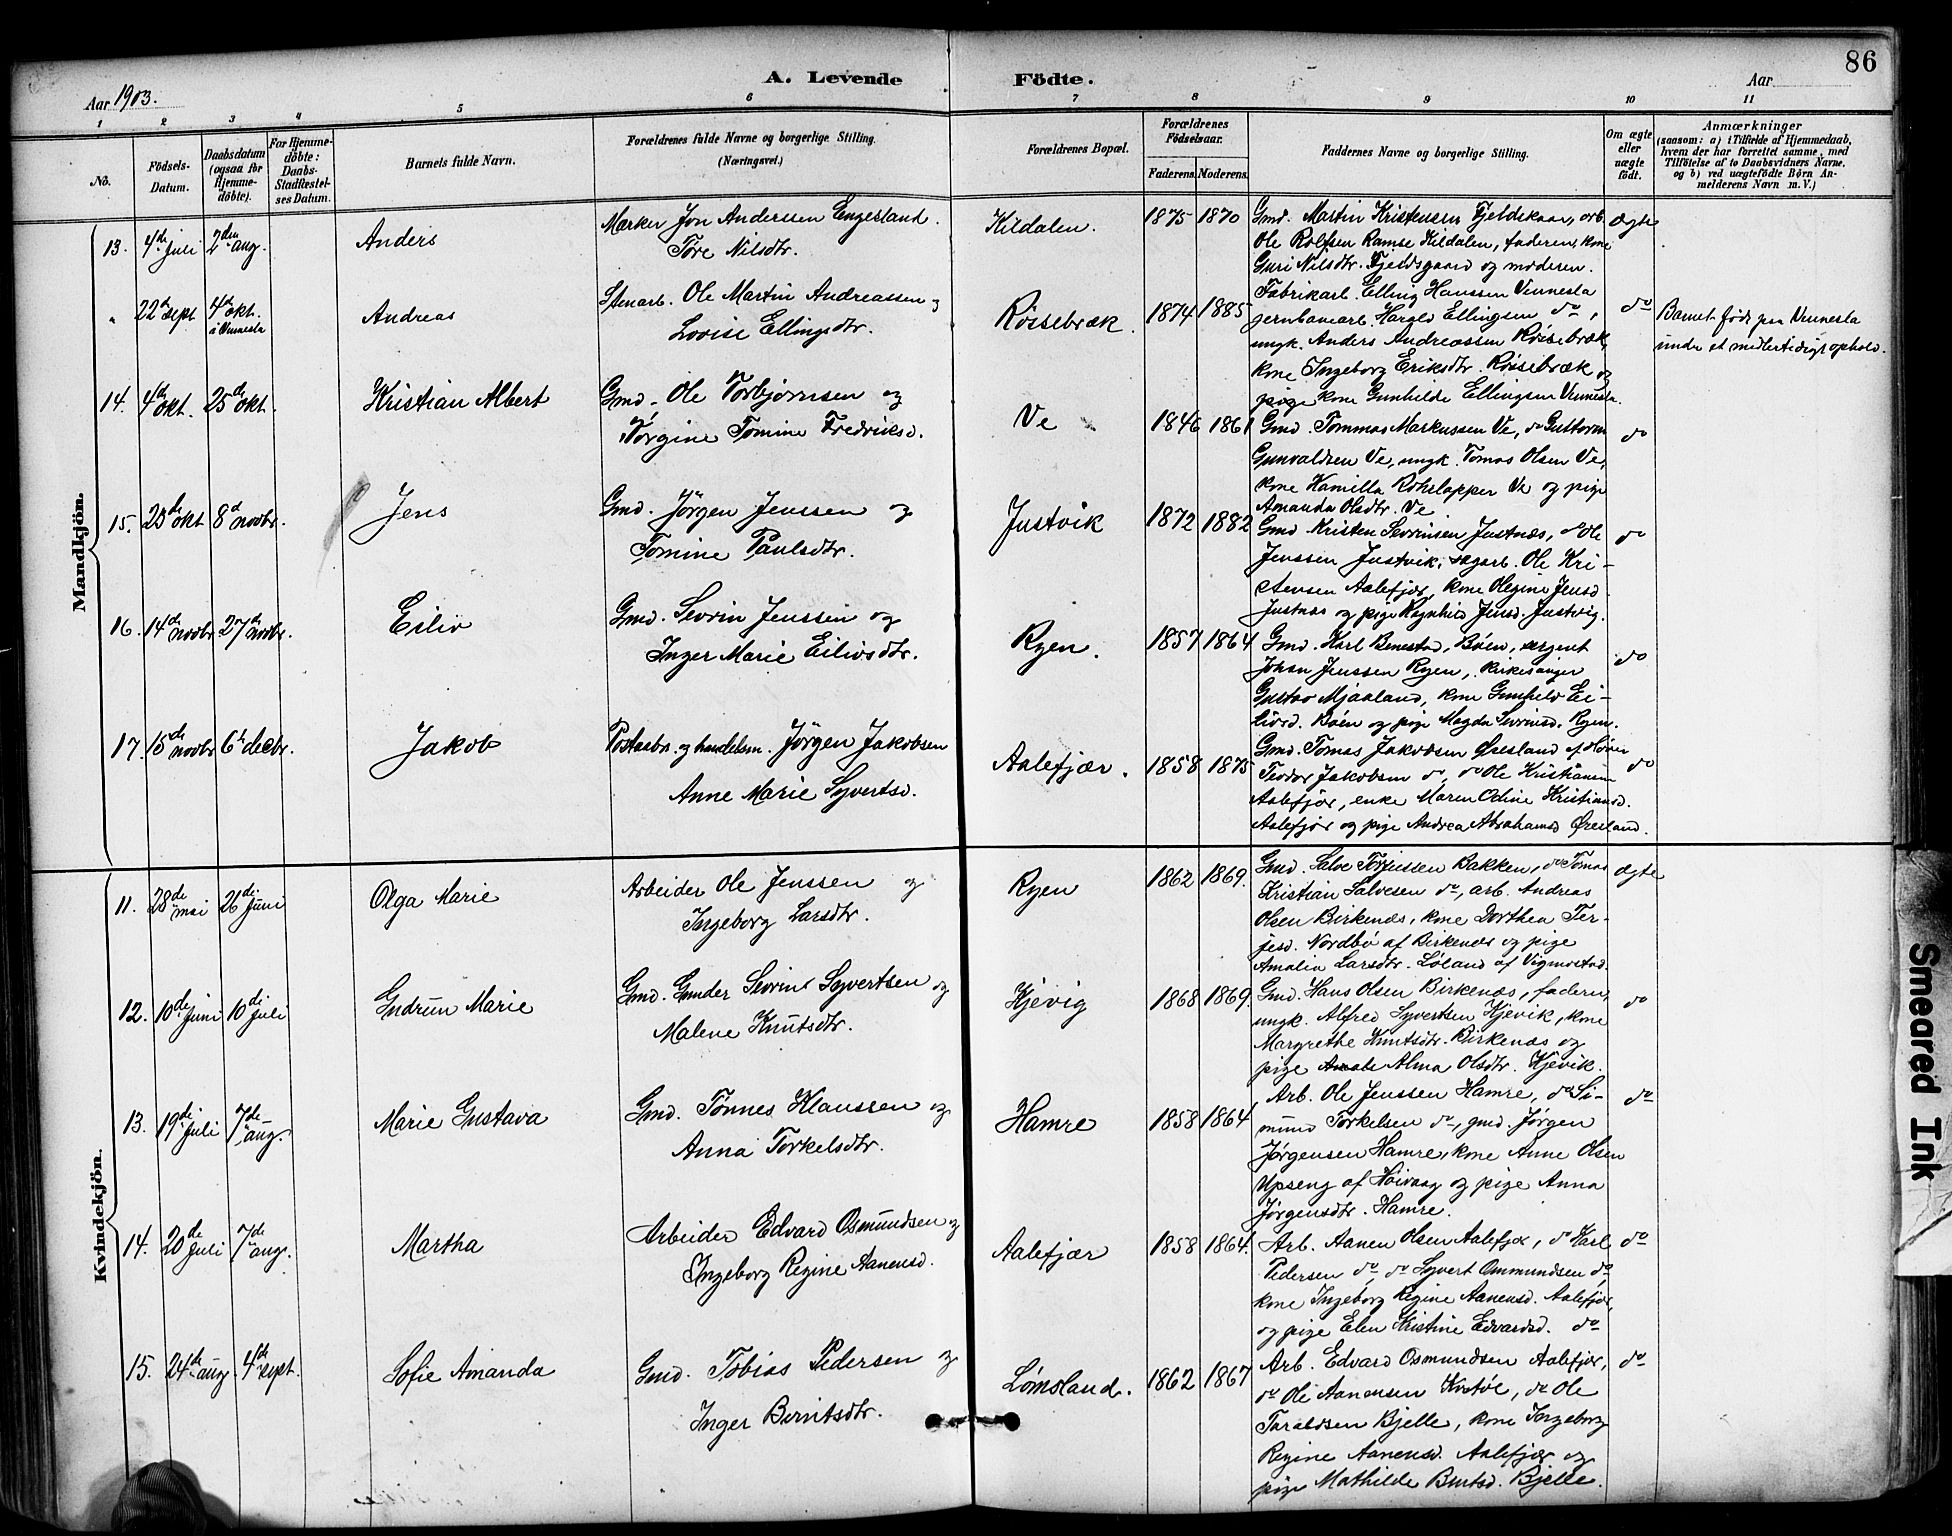 86
A. Levende Födte.
Aar 1903.
Aar
1 2 3 4 5 6 7 8 9 10 11
No.
Födsels-
Datum.
Daabsdatum
(ogsaa for
Hjemme-
döbte).
For Hjemme-
döbte:
Daabs-
Stadfæstel-
ses Datum.
Barnets fulde Navn.
Forældrenes fulde Navne og borgerlige Stilling.
(Næringsvei.)
Forældrenes Bopæl.
Forældrenes
Födselsaar.
Faderens. Moderens.
Faddernes Navne og borgerlige Stilling.
Om ægte
eller
uægte
födt.
Anmærkninger
(saasom: a) i Tilfælde af Hjemmedaab,
hvem der har forrettet samme, med
Tilföielse af to Daabsvidners Navne,
og b) ved uægtefödte Börn An-
melderens Navn m. V.)
Mandkjön.
13. 4de juli 2den aug. Anders
Marker Jon Anderssen Engesland.
Töre Nilsdtr.
Kildalen. 1875 1870
Gmd. Martin Kristensen Fjeldskaar, arb.
Ole Rolfsen Ramse Kildalen, faderen, kone
Guri Nilsdtr. Fjeldsgaard og moderen.
ægte
" 22de sept 4de okt. i Vennesla Andreas
Stenarb. Ole Martin Andreassen og
Lovise Ellingsdtr.
Røssebræk. 1874 1885
Fabrikarb. Elling Hanssen Vennesla
jernbanearb. Harald Ellingsen do,
ungk. Anders Andreassen Røssebræk,
kone Ingeborg Eriksdtr. Røssebræk og
pige kone Gunhilde Ellingsen Vennesla.
do
Barnet født paa Vennesla
under et midlertidigt ophold.
14. 4de okt. 25de okt. Kristian Albert
Gmd. Ole Torbjørnsen og
Törgine Tomine Fredriksd.
Ve 1846 1861
Gmd. Tommas Markussen Ve, do Guttorm
Gunvaldsen Ve, ungk. Tomas Olsen Ve,
kone Hamilla Rohslapper Ve og pige
Amanda Olsdtr. Ve
do
15. 23de okt 8de novbr. Jens
Gmd. Jörgen Jenssen og
Tomine Paulsdtr.
Justvik 1872 1882
Gmd. Kristen Sevrinsen Justnæs, do Ole
Jenssen Justvik, sagarb. Ole Kri-
stensen Aalefjær, kone Olegine Jensd.
Justnæs og pige Ragnhild Jensd. Justvig.
do
16. 14de novbr 27de novbr. Eiliv
Gmd. Sevrin Jenssen og
Inger Marie Eilivsdtr.
Ryen. 1857 1864
Gmd. Karl Benestad, Böen, sergent
Johan Jenssen Ryen, kirkesanger
Gustav Mjaaland, kone Gunhild Ei-
livsd. Böen og pige Magda Sevrinsd. Ryen.
do
17. 15de novbr 6te decbr. Jakob
Postaabn. og handelsm. Jörgen Jakobsen
Anne Marie Syvertsd.
Aalefjær. 1858 1875
Gmd. Tomas Jakobsen Øresland af
Teodor Jakobsen do, do Ole Kristiansen
Aalefjær, enke Maren Odine Kristiansd.
Aalefjær og pige Andrea Abrahamsd Øresland.
do
Kvindekjön.
11. 28de mai 26de juni Olga Marie
Arbeider Ole Jenssen og
Ingeborg Larsdtr.
Ryen 1862 1869.
Gmd. Salve Terjussen Bakken, do Tomas
Kristian Salvesen do, arb. Andreas
Olsen Birkenæs, kone Dorthea Ter-
jesd. Nordbö af Birkenæs og pige
Amalia Larsdtr. Löland af Vigmostad.
ægte
12. 10de juni 10de juli Gudrun Marie
Gmd. Gunder Sevrin Syvertsen og
Malene Knutsdtr.
Kjevig 1868 1869.
Gmd. Hans Olsen Birkenæs, faderen,
ungk. Alfred Syvertsen Kjevik, kone
Margrethe Knutsdtr. Birkenæs og
pige Alma Olsdtr. Kjevik.
do
13. 19de juli 7de aug. Marie Gustava
Gmd. Tönnes Klaussen og
Anna Torkelsdtr.
Hamre 1858 1864
Arb. Ole Jenssen Hamre, do Si-
mund Torkelsen do, gmd. Jörgen
Jörgensen Hamre, kone Anne Olsen
Upseng af Höivaag og pige Anna
Jörgensdtr. Hamre.
do
14. 20de juli 7de aug. Martha
Arbeider Edvard Osmundsen og
Ingeborg Regine Aanensd.
Aalefjær 1858 1864.
Arb. Aanen Olsen Aalefjær, do Karl
Pedersen do, do Syvert Ommundsen do,
kone Ingeborg Regine Aanensd. Aalefjær,
og pige Elen Kristine Edvardsd. do
do
15. 24de aug. 4de sept. Sofie Amanda
Gmd. Tobias Pedersen og
Inger Berntsdtr.
Lømsland. 1862 1867
Arb. Edvard Osmundsen Aalefjær,
do Ole Aanensen do Ole
Taraldsen Bjelle, kone Ingeborg
Regine Aanensd. Aalefjær og
pige Mathilde Berntsd. Bjelle.
do
Smeared Ink